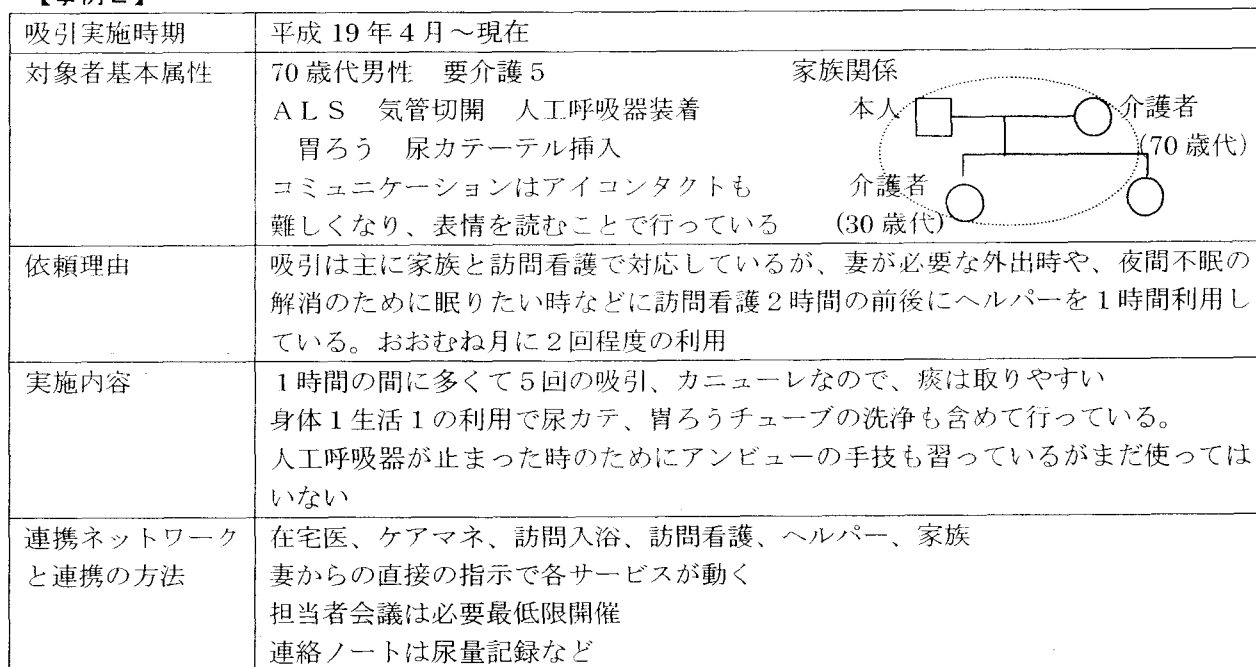 【事例2】
吸引実施時期 平成19年4月～現在
対象者基本属性 70歳代男性 要介護5 家族関係
ALS 気管切開 人工呼吸器装着 本人 介護者
胃ろう 尿カテーテル挿入 (70歳代)
コミュニケーションはアイコンタクトも 介護者
難しくなり、表情を読むことで行っている (30歳代)
依頼理由 吸引は主に家族と訪問看護で対応しているが、妻が必要な外出時や、夜間不眠の
解消のために眠りたい時などに訪問看護2時間の前後にヘルパーを1時間利用し
ている。おおむね月に2回程度の利用
実施内容 1時間の間に多くて5回の吸引、カニューレなので、痰は取りやすい
身体1生活1の利用で尿カテ、胃ろうチューブの洗浄も含めて行っている。
人工呼吸器が止まった時のためにアンビューの手技も習っているがまだ使っては
いない
連携ネットワーク 在宅医、ケアマネ、訪問入浴、訪問看護、ヘルパー、家族
と連携の方法 妻からの直接の指示で各サービスが動く
担当者会議は必要最低限開催
連絡ノートは尿量記録など